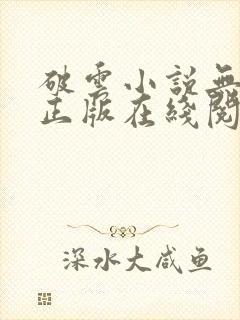 破雲小説無
正版在綫閱
深水大咸鱼